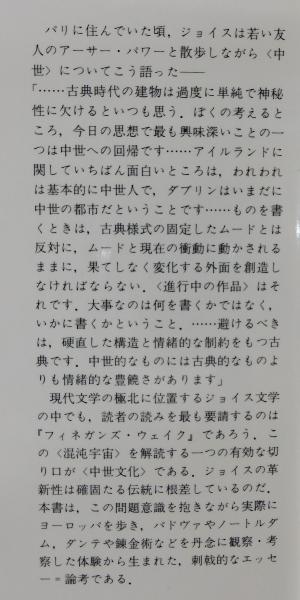 パリに住んでいた頃，ジョイスは若い友
人のアーサー・パワーと散歩しながら〈中
世〉についてこう語った——
「……古典時代の建物は過度に単純で神秘
性に欠けるといつも思う．ぼくの考えると
ころ，今日の思想で最も興味深いことの一
つは中世への回帰です……アイルランドに
関していちばん面白いところは，われわれ
は基本的に中世人で，ダブリンはいまだに
中世の都市だということです……ものを書
くときは，古典様式の固定したムードとは
反対に，ムードと現在の衝動に動かされる
ままに，果てしなく変化する外面を創造し
なければならない．〈進行中の作品〉はそ
れです．大事なのは何を書くかではなく，
いかに書くかということ．……避けるべき
は，硬直した構造と情緒的な制約をもつ古
典です．中世的なものには古典的なものよ
りも情緒的な豊饒さがあります」
現代文学の極北に位置するジョイス文学
の中でも，読者の読みを最も要請するのは
『フィネガンズ・ウェイク』であろう．こ
の〈混沌宇宙〉を解読する一つの有効な切
り口が〈中世文化〉である．ジョイスの革
新性は確固たる伝統に根差しているのだ．
本書は，この問題意識を抱きながら実際に
ヨーロッパを歩き，パドヴァやノートルダ
ム，ダンテや錬金術などを丹念に観察・考
察した体験から生まれた，刺戟的なエッセ
ー＝論考である．